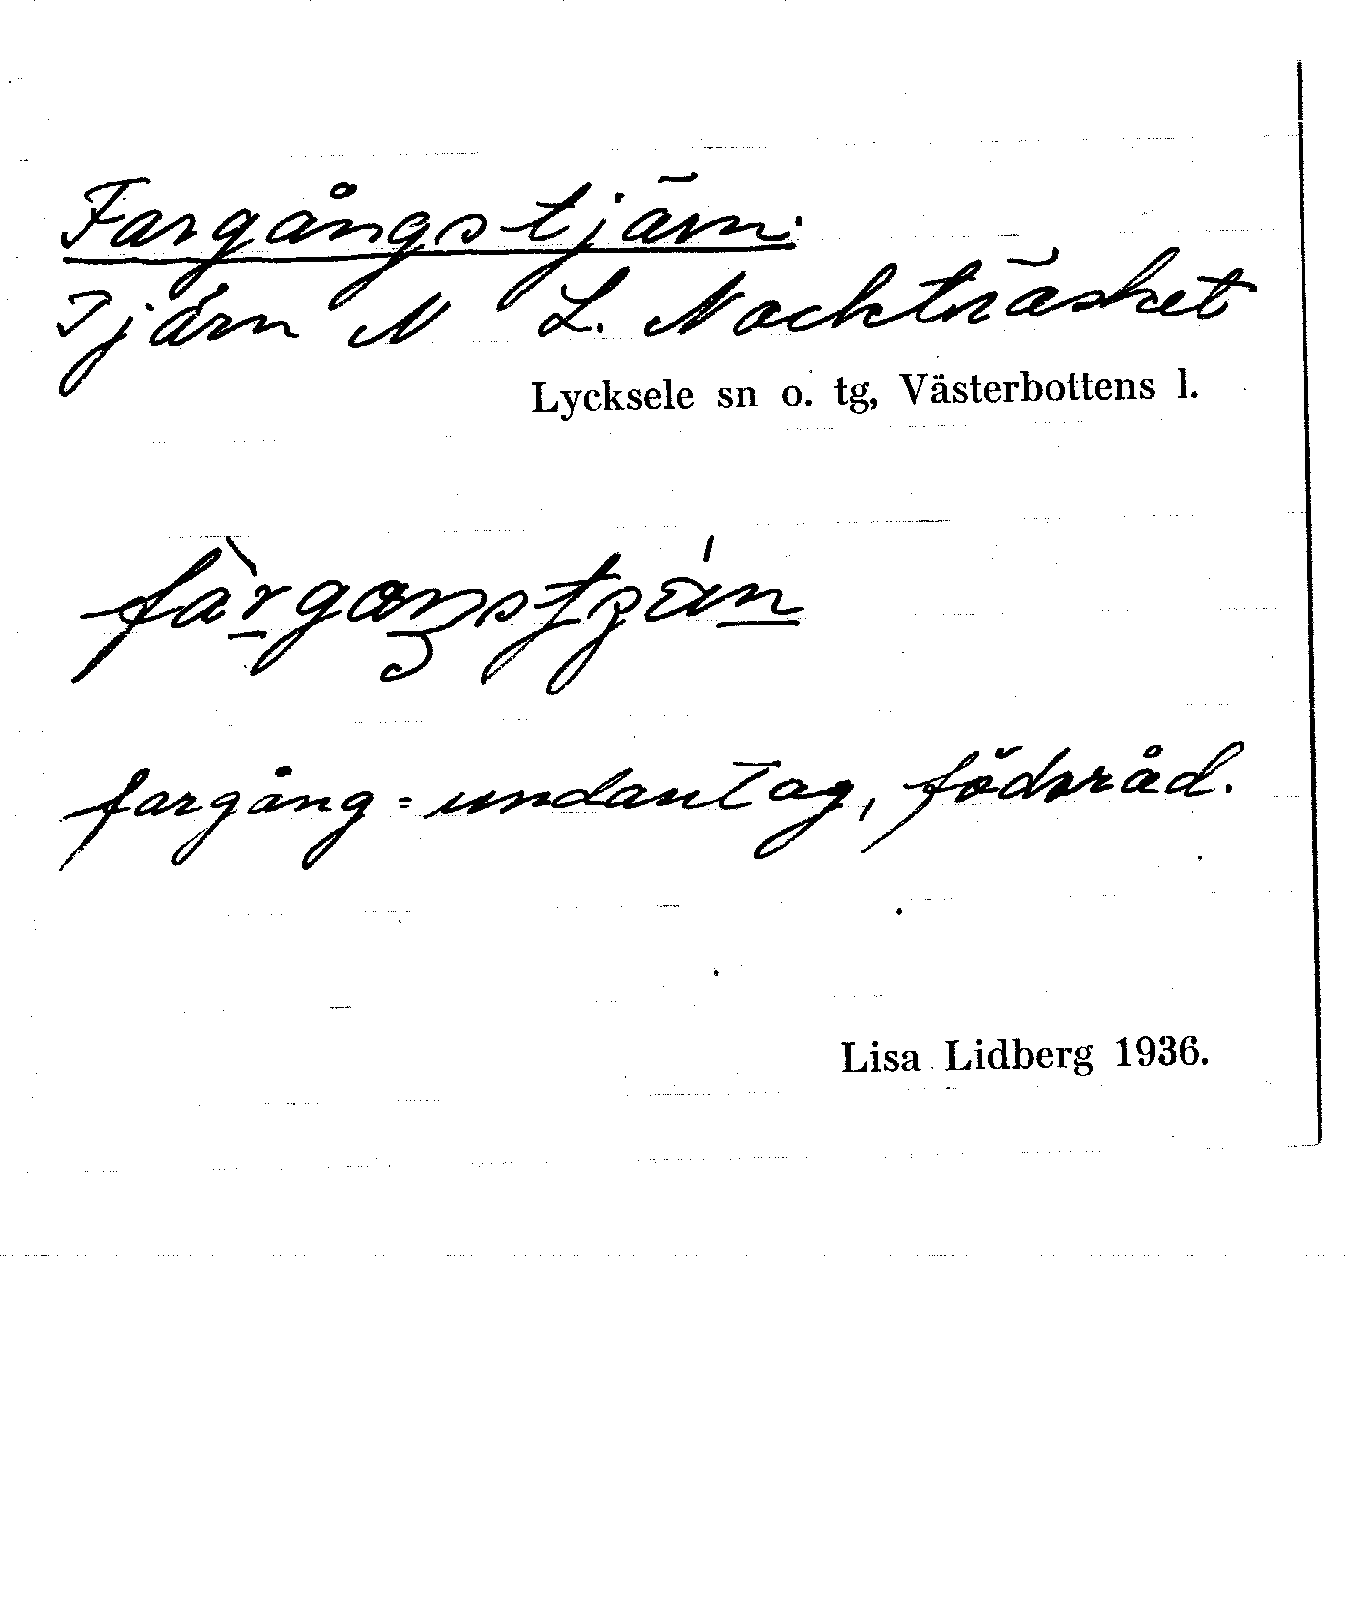 Fargångstjärn.
Tjärn N L. Nockträsket
Lycksele sn o. tg, Västerbottens l.
fargång = undantag, födoråd.
Lisa Lidberg 1936.